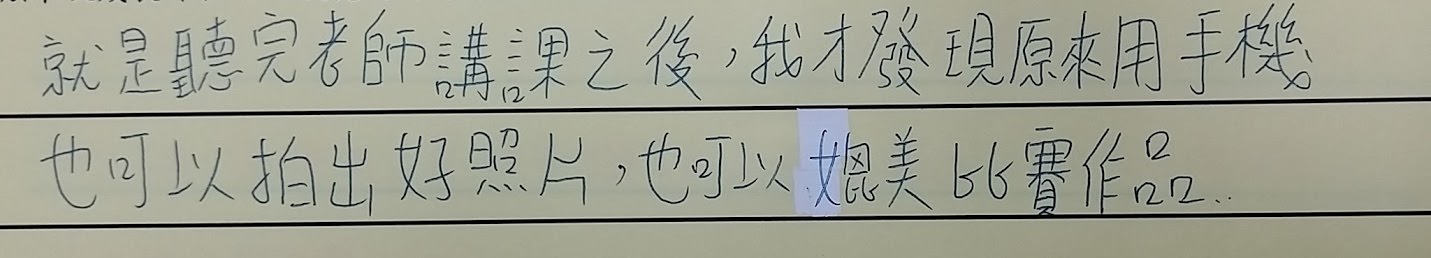 就是聽完老師講課之後，我才發現原來用手機
也可以拍出好照片，也可以媲美比賽作品..